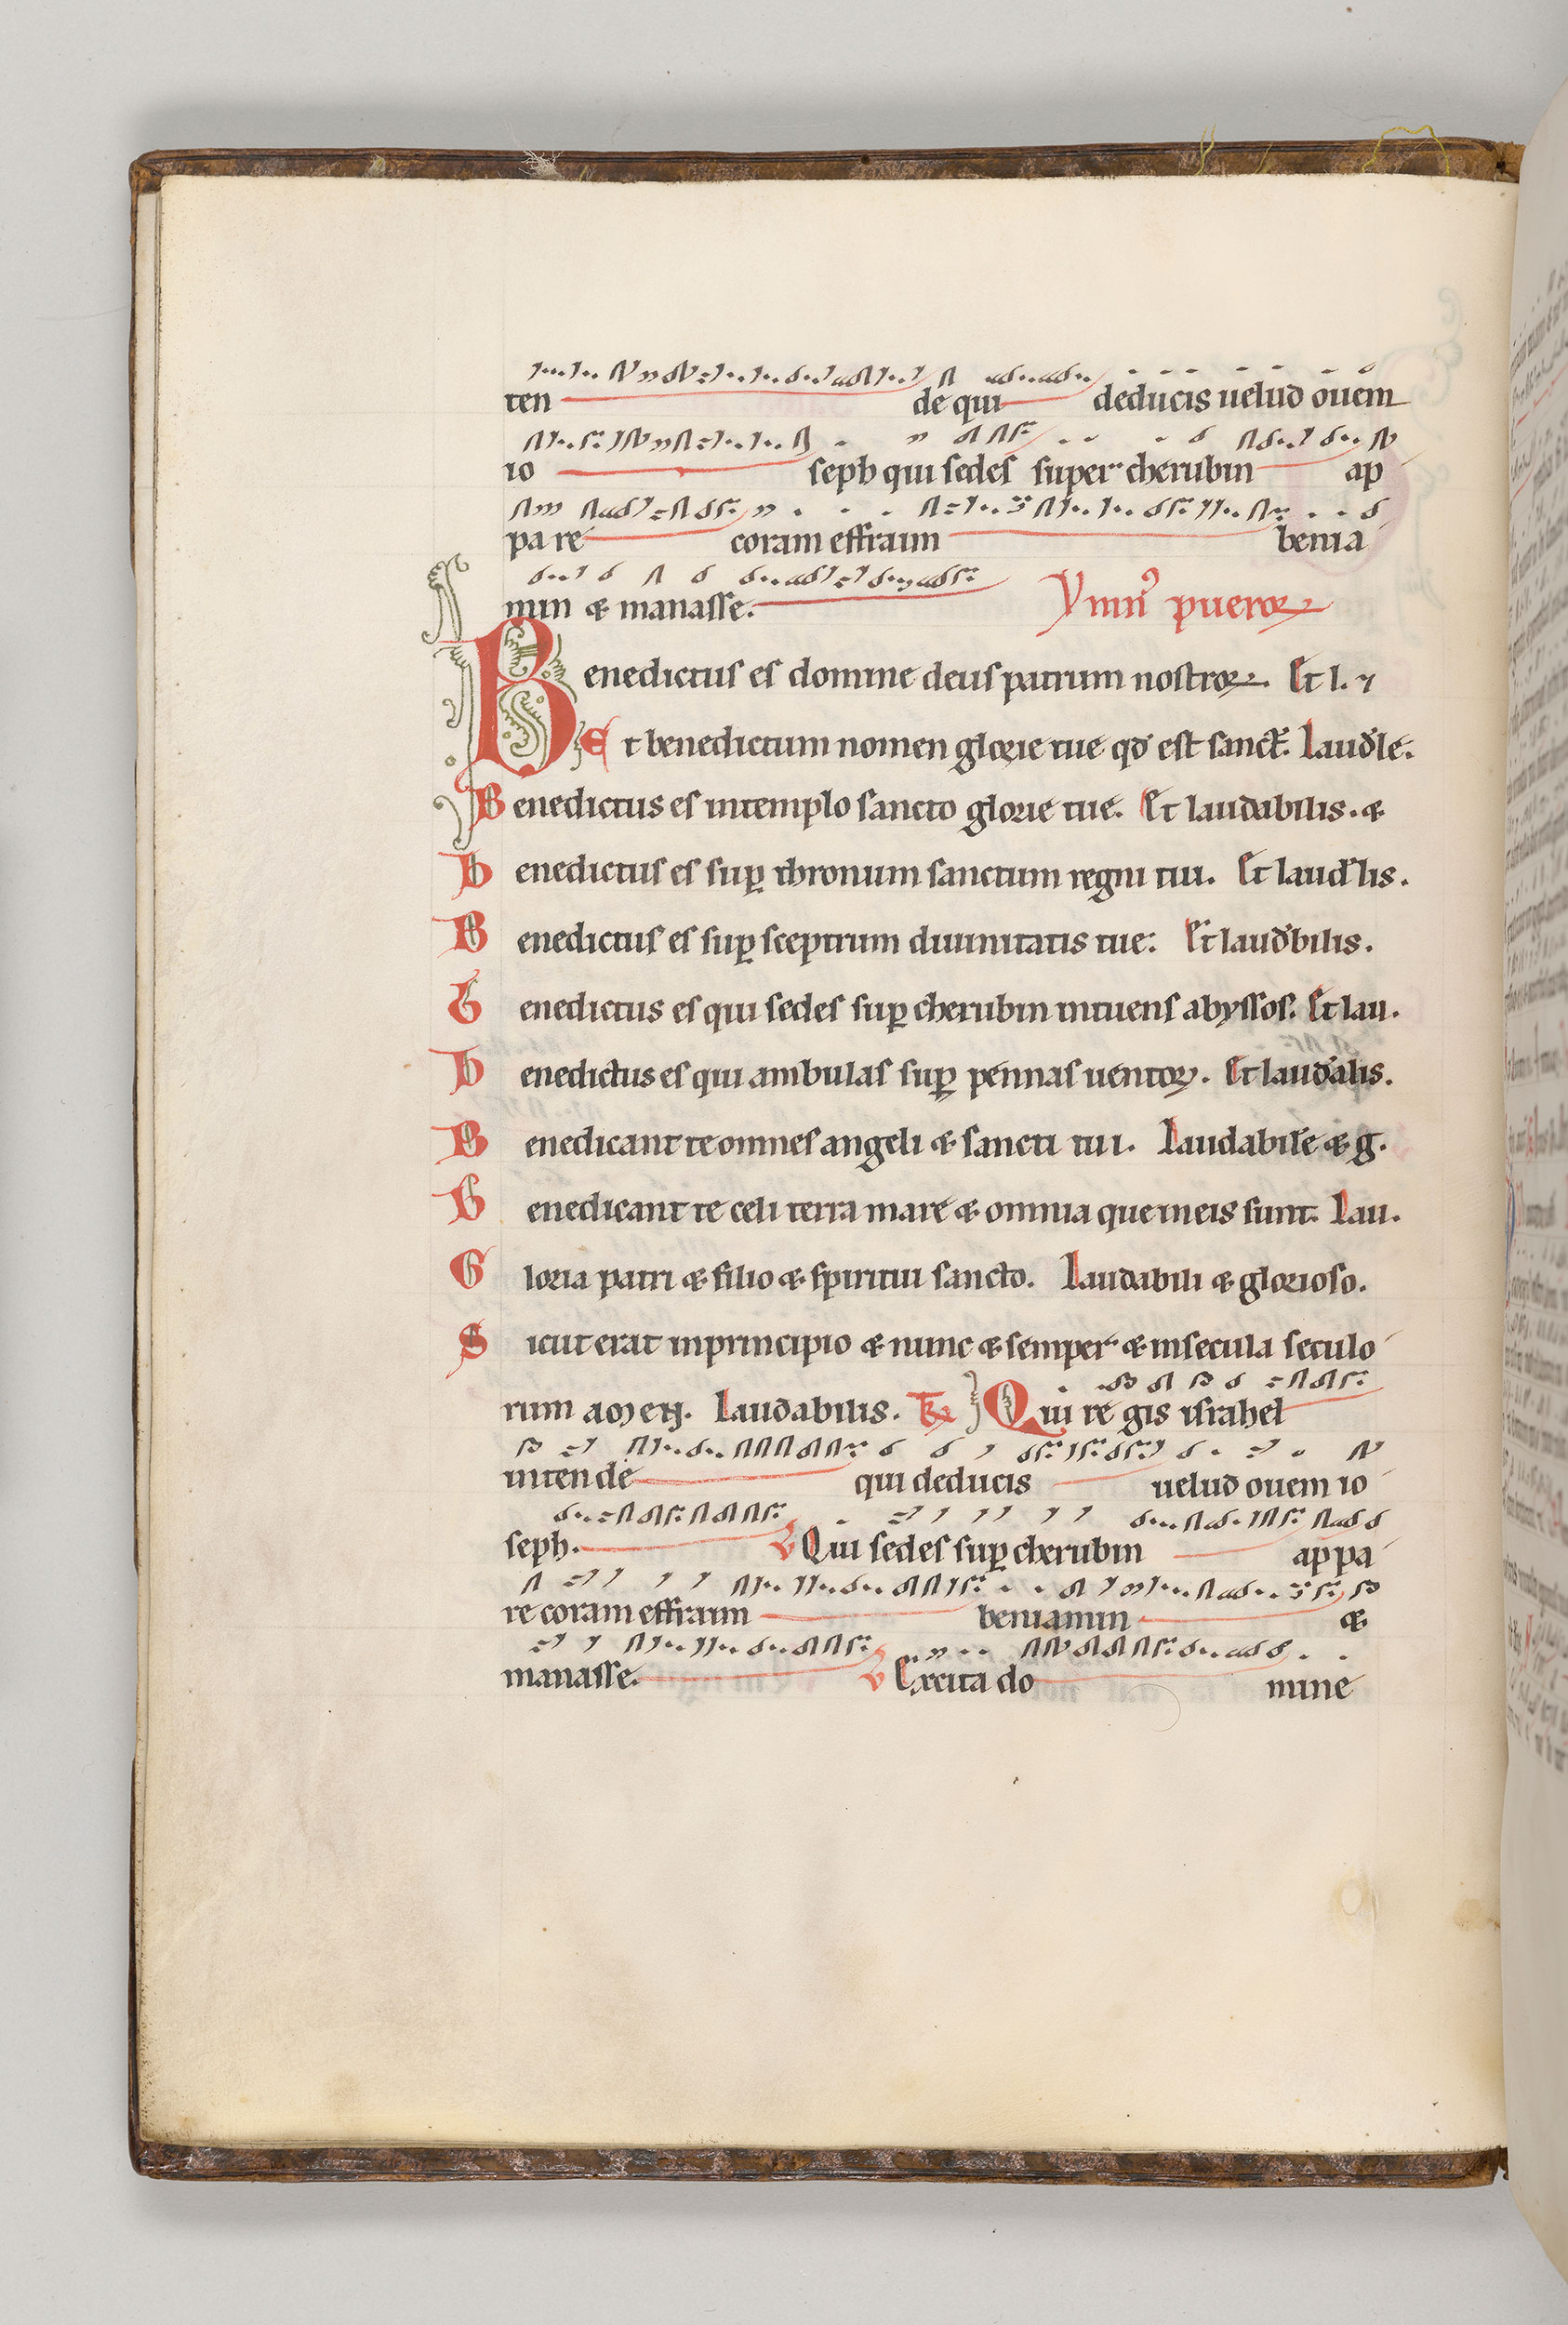 ten de qui deducis uelud ouem
io seph qui sedes super cherubin ap
pa re coram effraim benia
min & manasse. Ymn᷒ pueroꝝ
Benedictus es domine deus patrum nostroꝝ. Et l. ⁊
Et benedictum nomen glorie tue qd̕ est sanct̄. Laud̕le.
Benedictus es intemplo sancto glorie tue. Et laudabilis. &
Benedictus es suꝑ thronum sanctum regni tui. Et laud̕lis.
Benedictus es suꝑ sceptrum diuinitatis tue: Et laud̕bilis.
Benedictus es qui sedes suꝑ cherubin intuens abyssos. Et lau.
Benedictus es qui ambulas suꝑ pennas uentoꝝ. Et laud̕alis.
Benedicant te omnes angeli & sancti tui. Laudabile & g.
Benedicant te celi terra mare & omnia que ineis sunt. Lau.
Gloria patri & filio & spiritui sancto. Laudabili & glorioso.
Sicut erat inprincipio & nunc & semper & insecula seculo
rum amen. Laudabilis. Tꝝ Qui re gis israhel
inten de qui deducis uelud ouem io
seph. V Qui sedes suꝑ cherubin ap pa
re coram effraim beniamin &
manasse. V Excita do mine